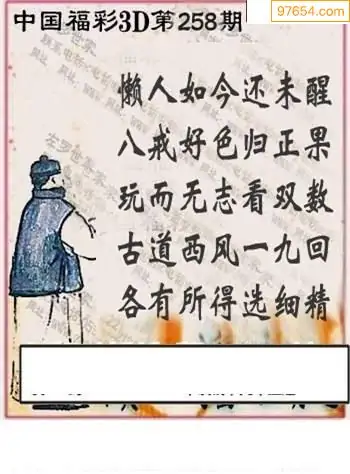 97654.com
中国福彩3D第258期
懒人如今还未醒
八戒好色归正果
玩而无志看双数
古道西风一九回
各有所得选细精